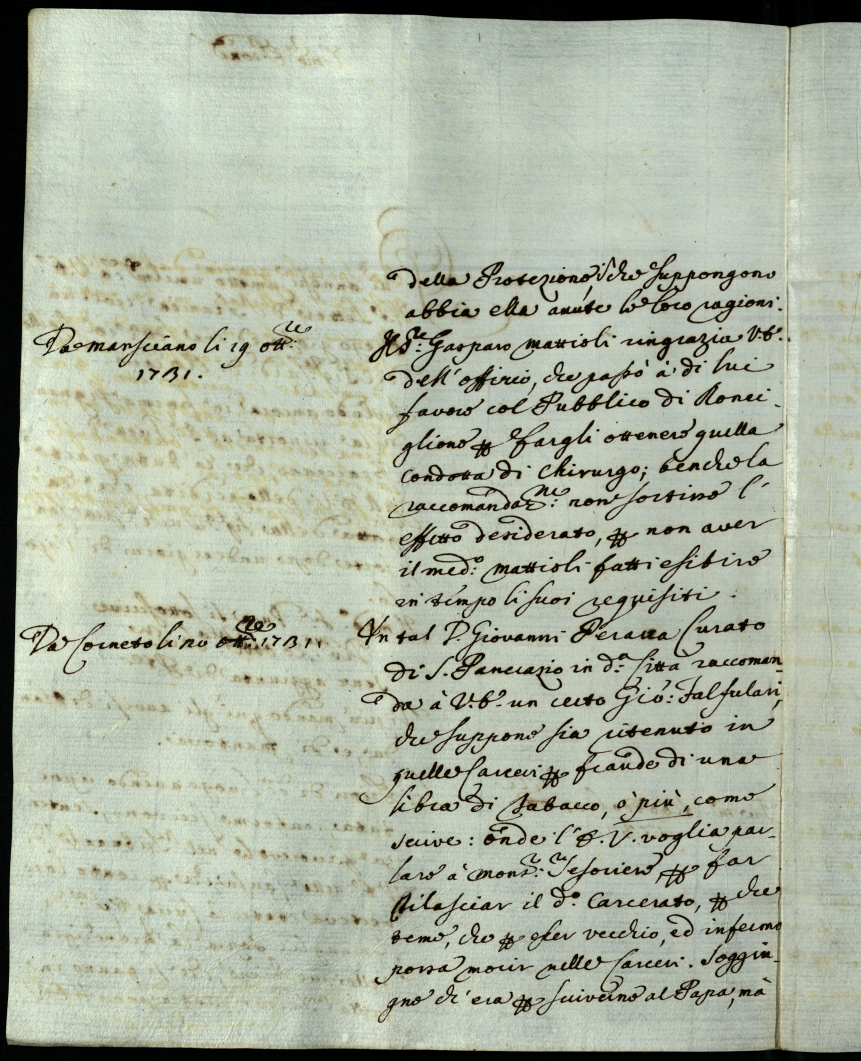 della Protezione, che suppongono
abbia ella avute le loro ragioni.
Da Marsciano li 19 ott.re
1731.
Il S.r Gasparo Mattioli ringrazia V.S.
dell'offizio, che passò à di lui
favore col Pubblico di Ronci-
glione ꝑ fargli ottenere quella
condotta di Chirurgo; benche la
raccomandaz.ne non sortisse l'
effetto desiderato, ꝑ non aver
il med.o Mattioli fatti esibire
in tempo li suoi requisiti.
Da Corneto li 20 ott.re 1731.
Un tal D. Giovanni Curato
di S. Pancrazio in d.a Città raccoman
da à V.S. un certo Gio: Falsulari,
che suppone sia ritenuto in
quelle Carceri ꝑ fraude di una
libra di tabacco, ò più, come
scrive: onde l'E.V. voglia par-
lare à Mons.r Tesoriere, ꝑ far
rilasciar il d.o Carcerato, ꝑ che
teme, che ꝑ esser vecchio, ed infermo
possa morir nelle Carceri. Soggiu-
gne ch'era ꝑ scriverne al Papa, mà